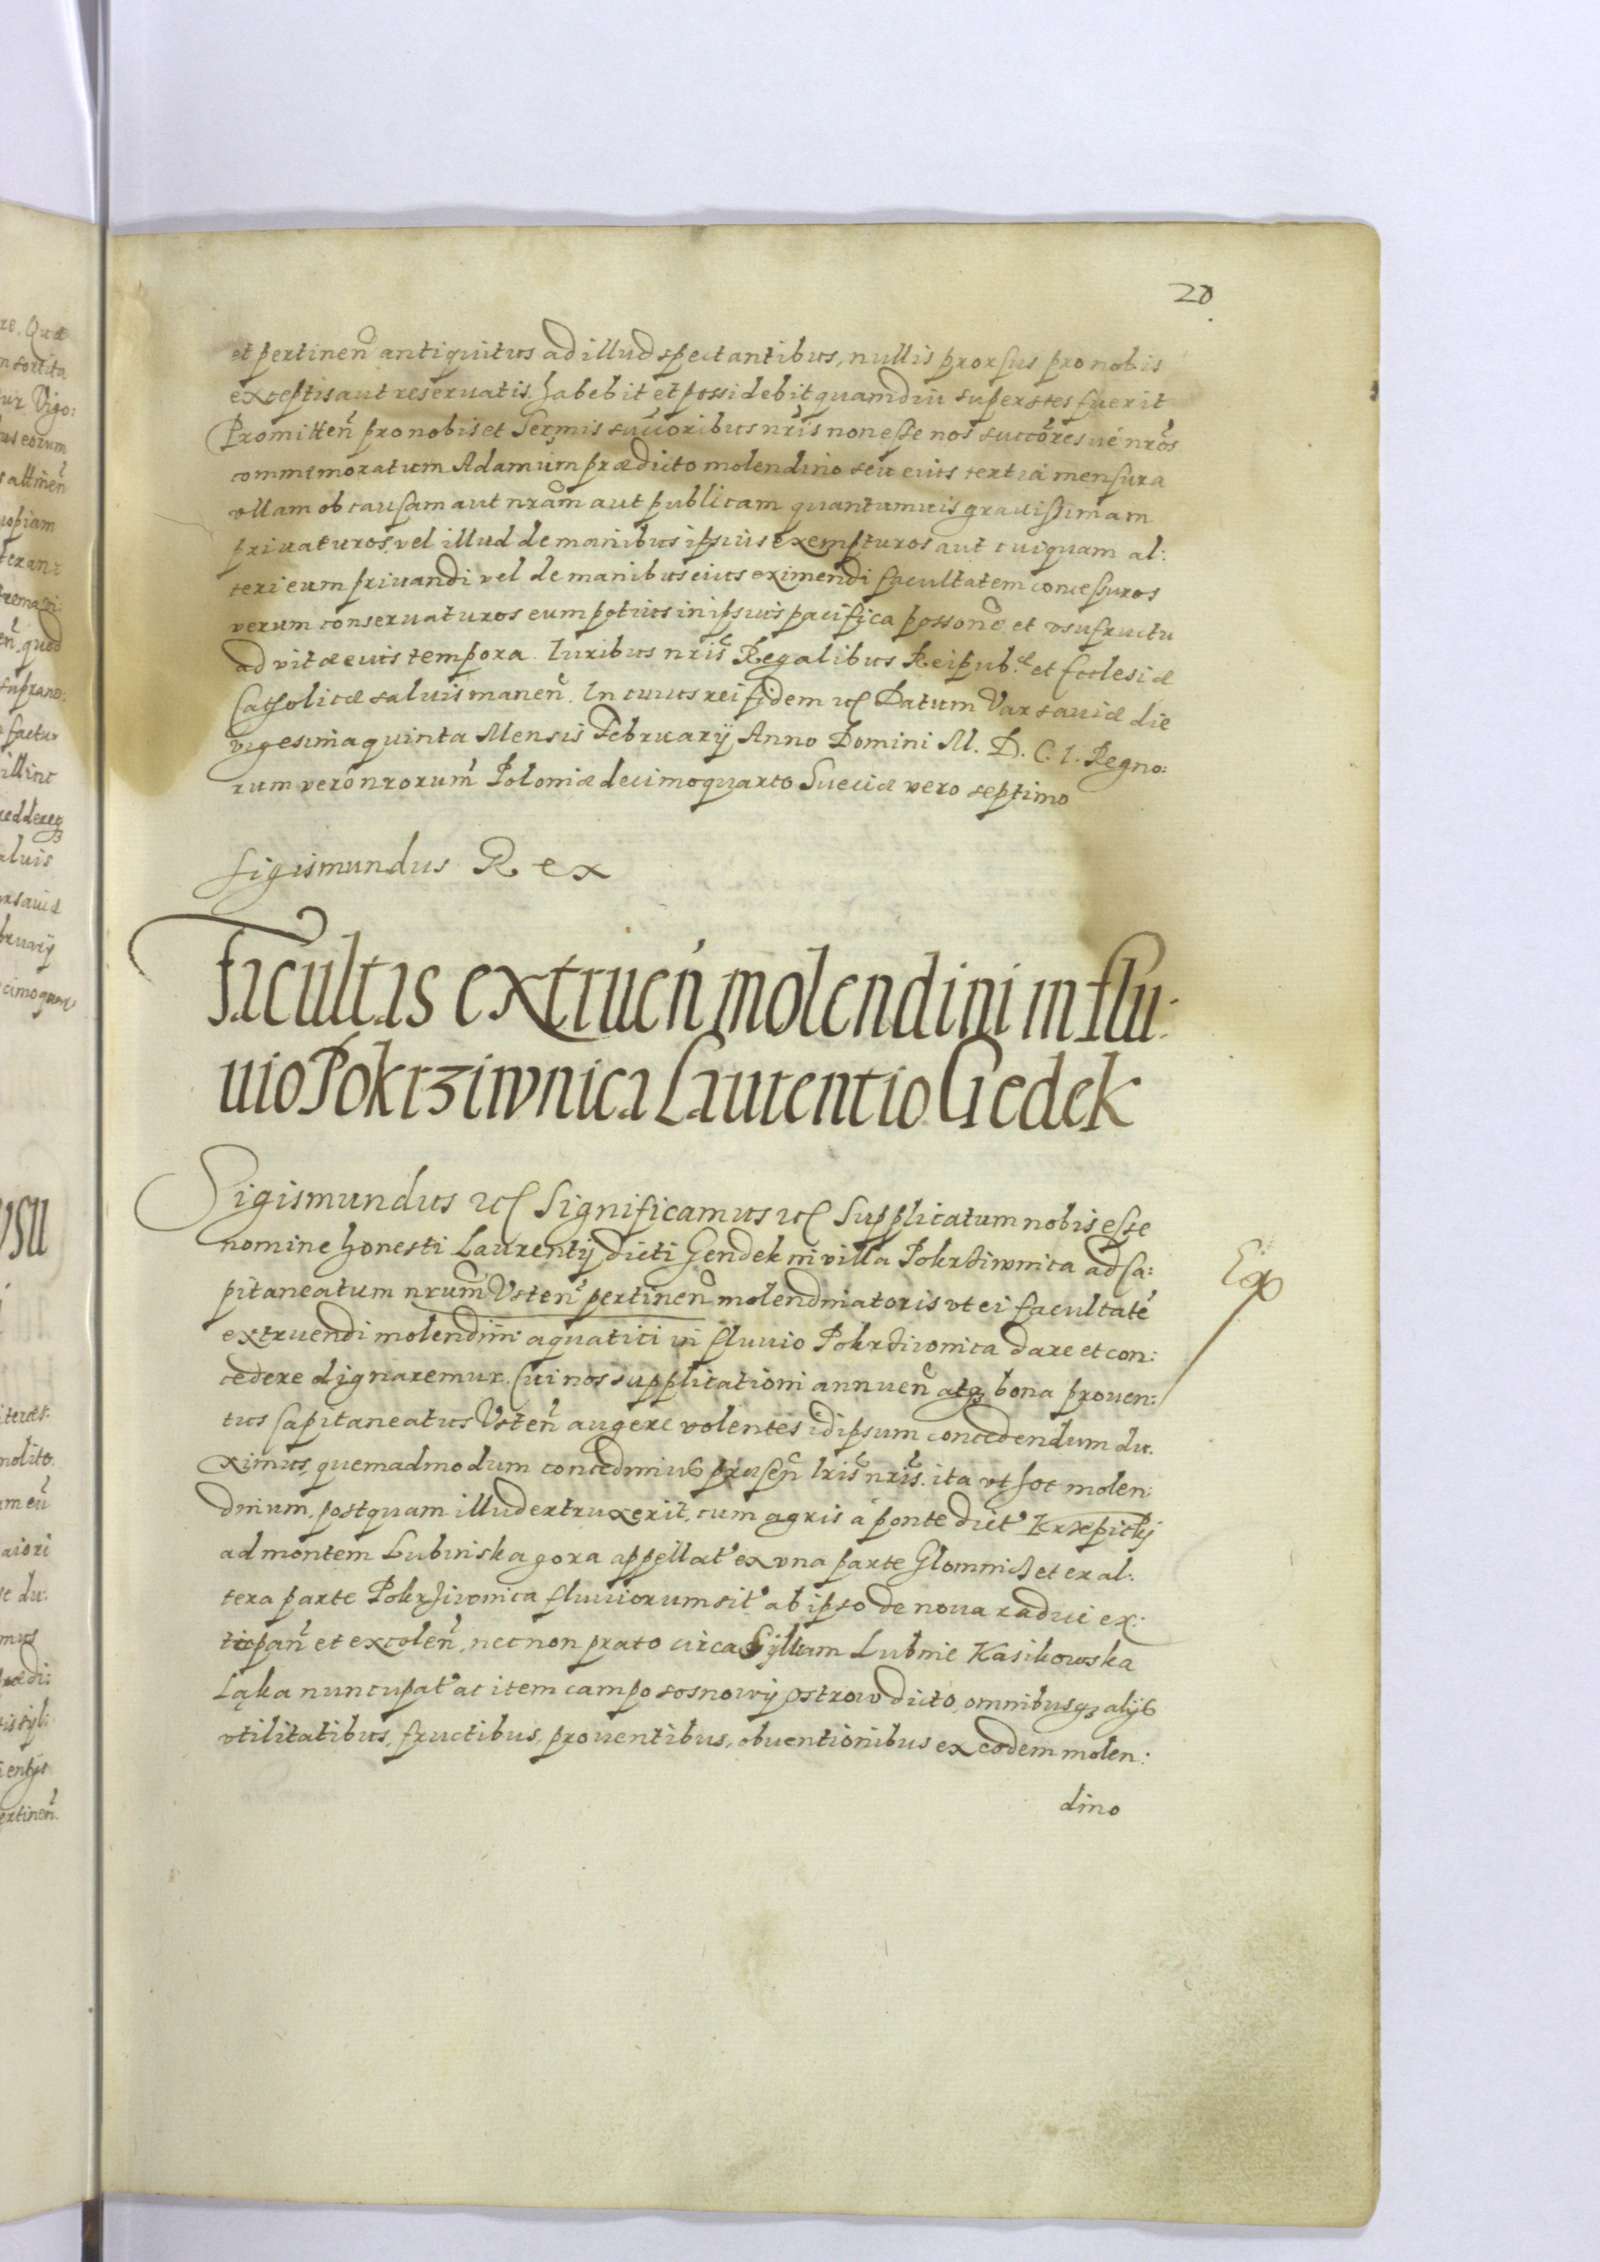 20
et pertinen̄ antiquitus ad illud spectantibus, nullis prorsus pro nobis
exceptis aut reseruatis. habebit et possidebit quamdiu superstes fuerit
Promitten̄ pro nobis et Sermis suc̄coribus nr̄is non esse nos succōres ué nr̄os
commemoratum Adamum prædicto molendino seu eius tertia mensura
ullam ob causam aut nrām aut publicam quantumuis grauissimam
priuaturos, vel illud de manibus ipsius exempturos aut cuiquam al:
teri eum priuandi vel de manibus eius eximendi facultatem concessuros
verum conseruaturos eum potius in ipsius pacifica possōne et vsufructu
ad vitæ eius tempora. Iuribus nr̄is Regalibus Reipub:æ et Ecclesiæ
Catholicæ saluis manen̄. In cuius rei fidem etc Datum Varsauiæ die
vigesima quinta Mensis February Anno Domini M. D. C. I. Regno:
rum vero nrorum̄ Poloniæ decimoquarto Sueciæ vero septimo
Sigismundus Rex
Facultas extruen̄ molendini in flu:
uio Pokrziwnica Laurentio Gedek
Sigismundus etc Significamus etc Supplicatum nobis esse
nomine honesti Laurentij dicti Gendek in villa Pokrziwnica ad Ca:
pitaneatum nrum̄ Vsten̄ pertinen̄ molendinatoris vt ei facultatē
extruendi molendini aquatici in fluuio Pokrziwnica dare et con:
cedere dignaremur. Cui nos supplicationi annuen̄ atqꝫ bona prouen:
tus Capitaneatus Vsten̄ augere volentes idipsum concedendum du:
ximus, quemadmodum concedimus præsen̄ lr̄is nr̄is. ita vt hoc molen:
dinum, postquam illud extruxerit, cum agris a ponte dict' Krzepicky
ad montem Lubinska gora appellat' ex vna parte Glomnicz et ex al:
tera parte Pokrziwnica fluuiorum sit' ab ipso de noua radice ex:
tirpan̄ et excolen̄, nec non prato circa Syluam Lubnie Kasikowska
Ląka nuncupat' ac item campo sosnowy ostrow dicto, omnibusqꝫ alijs
vtilitatibus, fructibus, prouentibus, obuentionibus ex eodem molen:
dino
Ex